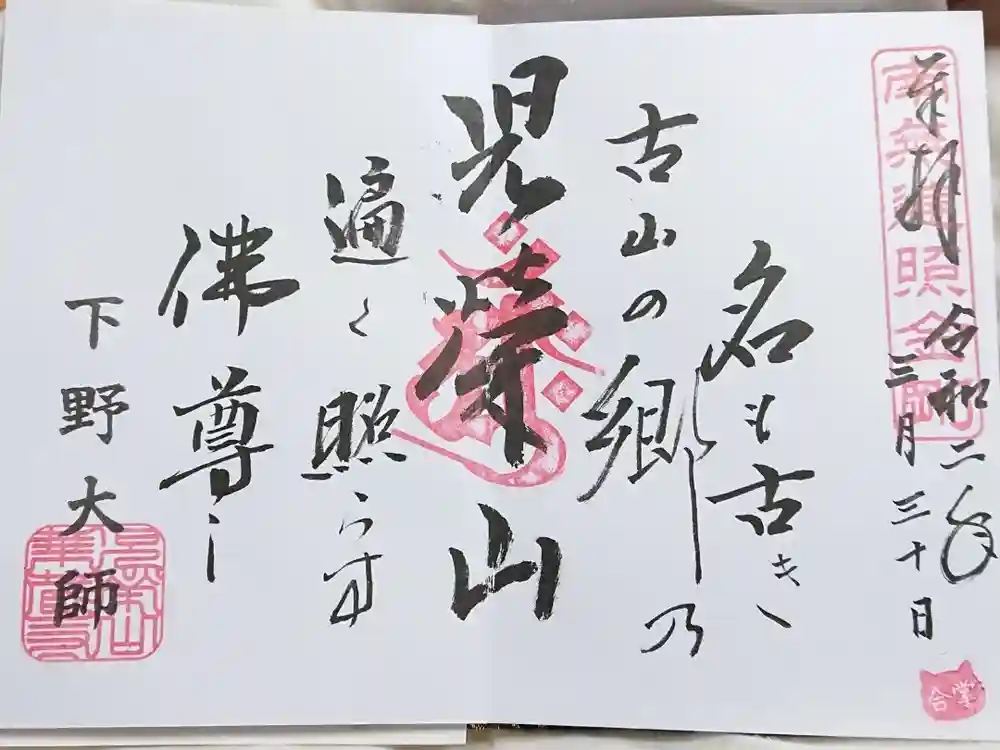 奉拝
南無遍照金剛
令和二年
三月三十日
合掌
名も古き
し乃
古山の郷
児榮山
遍く照らす
佛尊し
下野大師